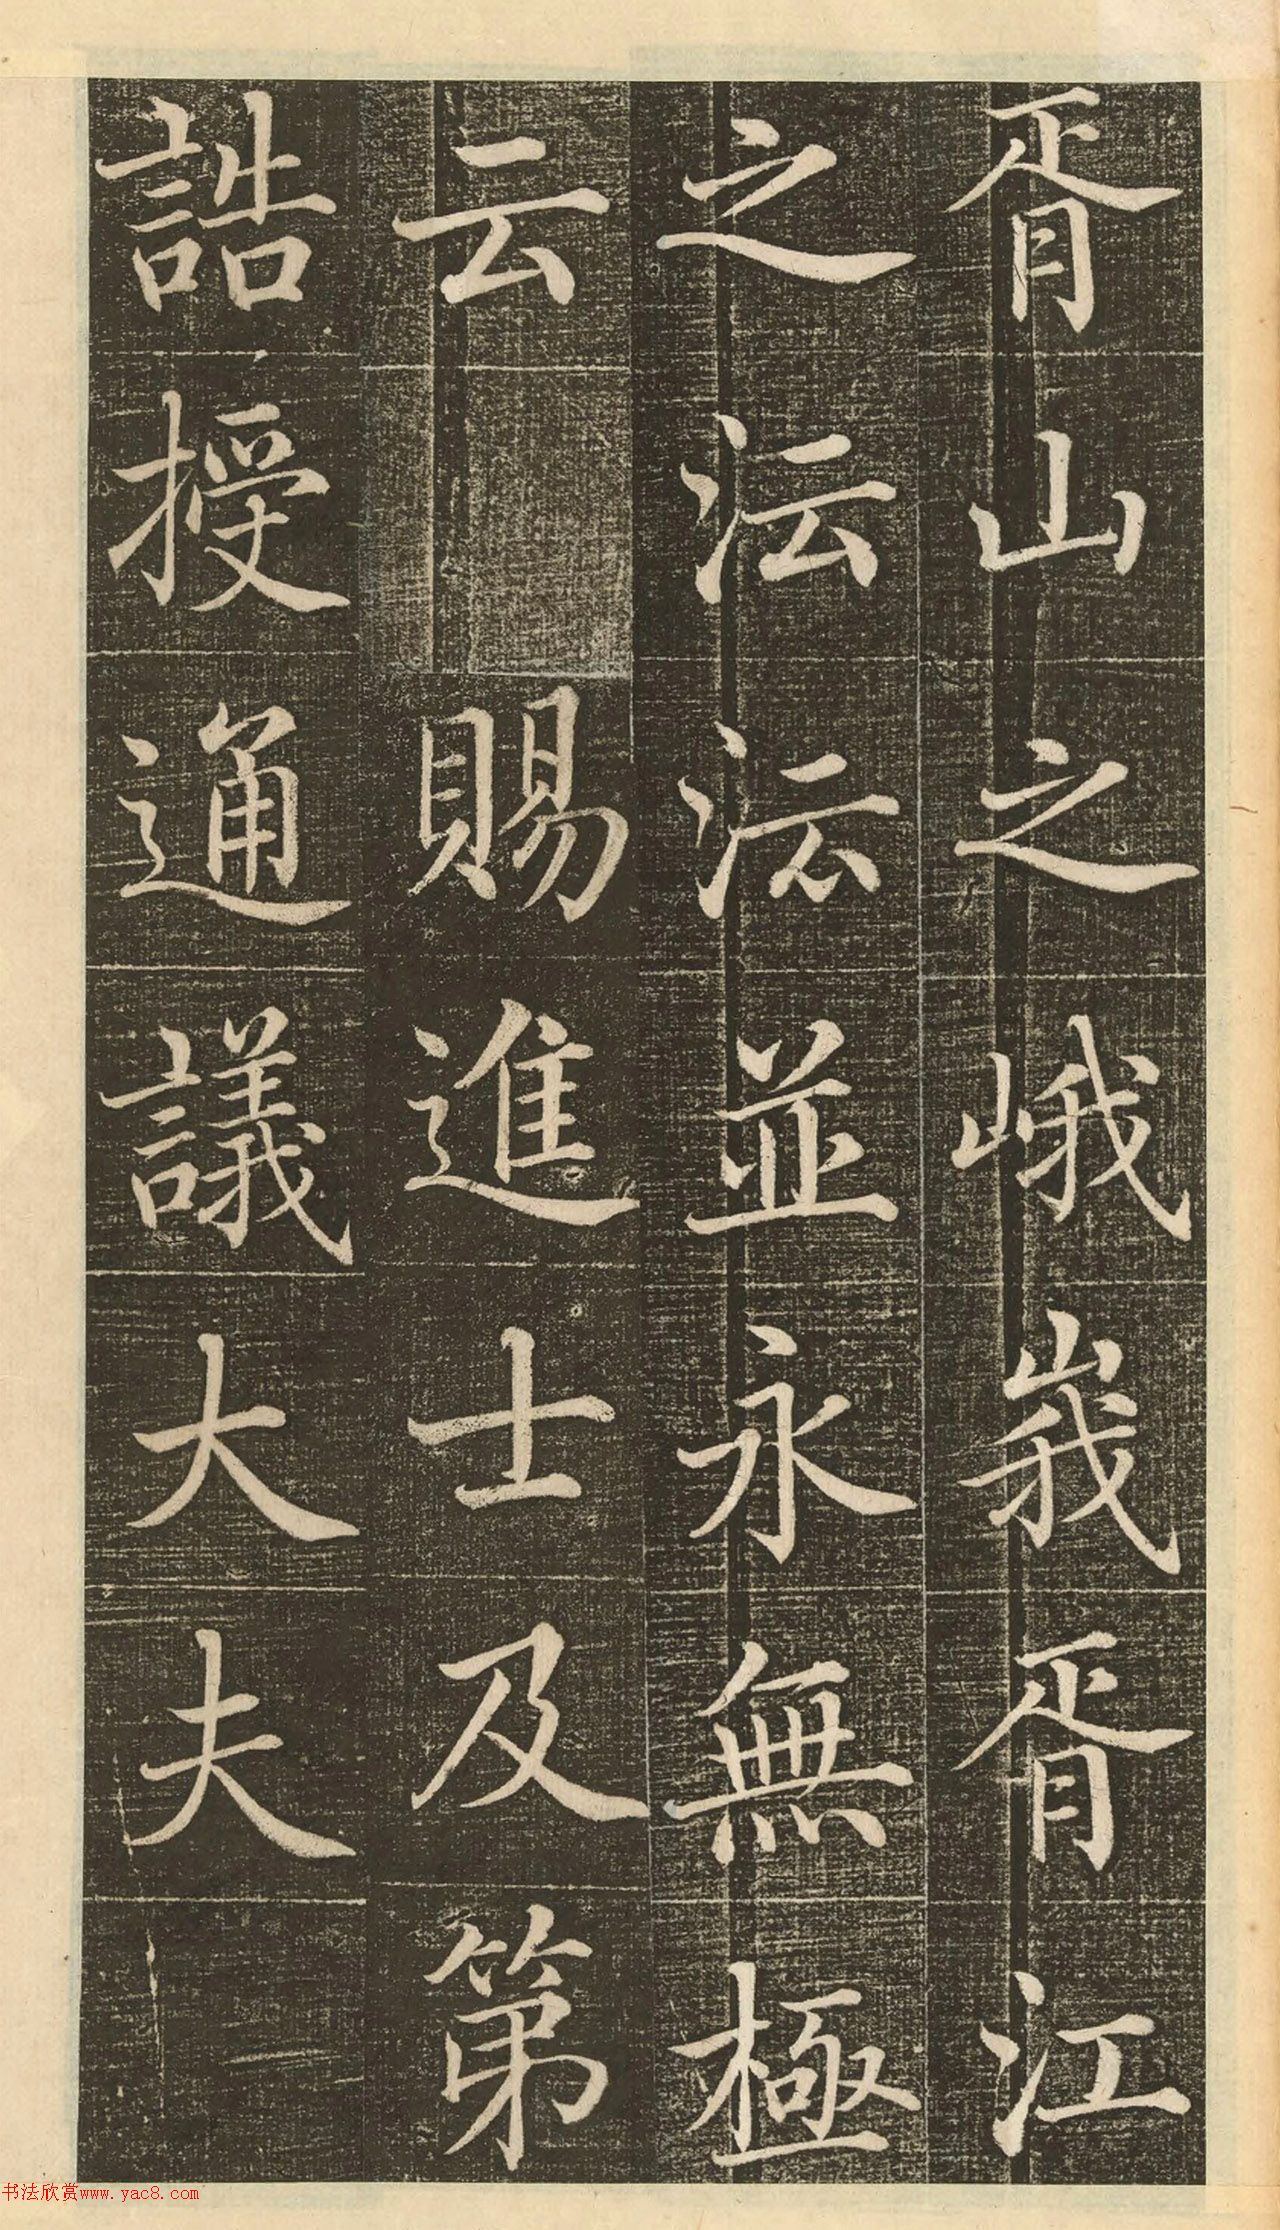 胥山之峨峩胥江
之沄沄並永無極
云　賜進士及第
誥授通議大夫
书法欣赏www.yac8.com